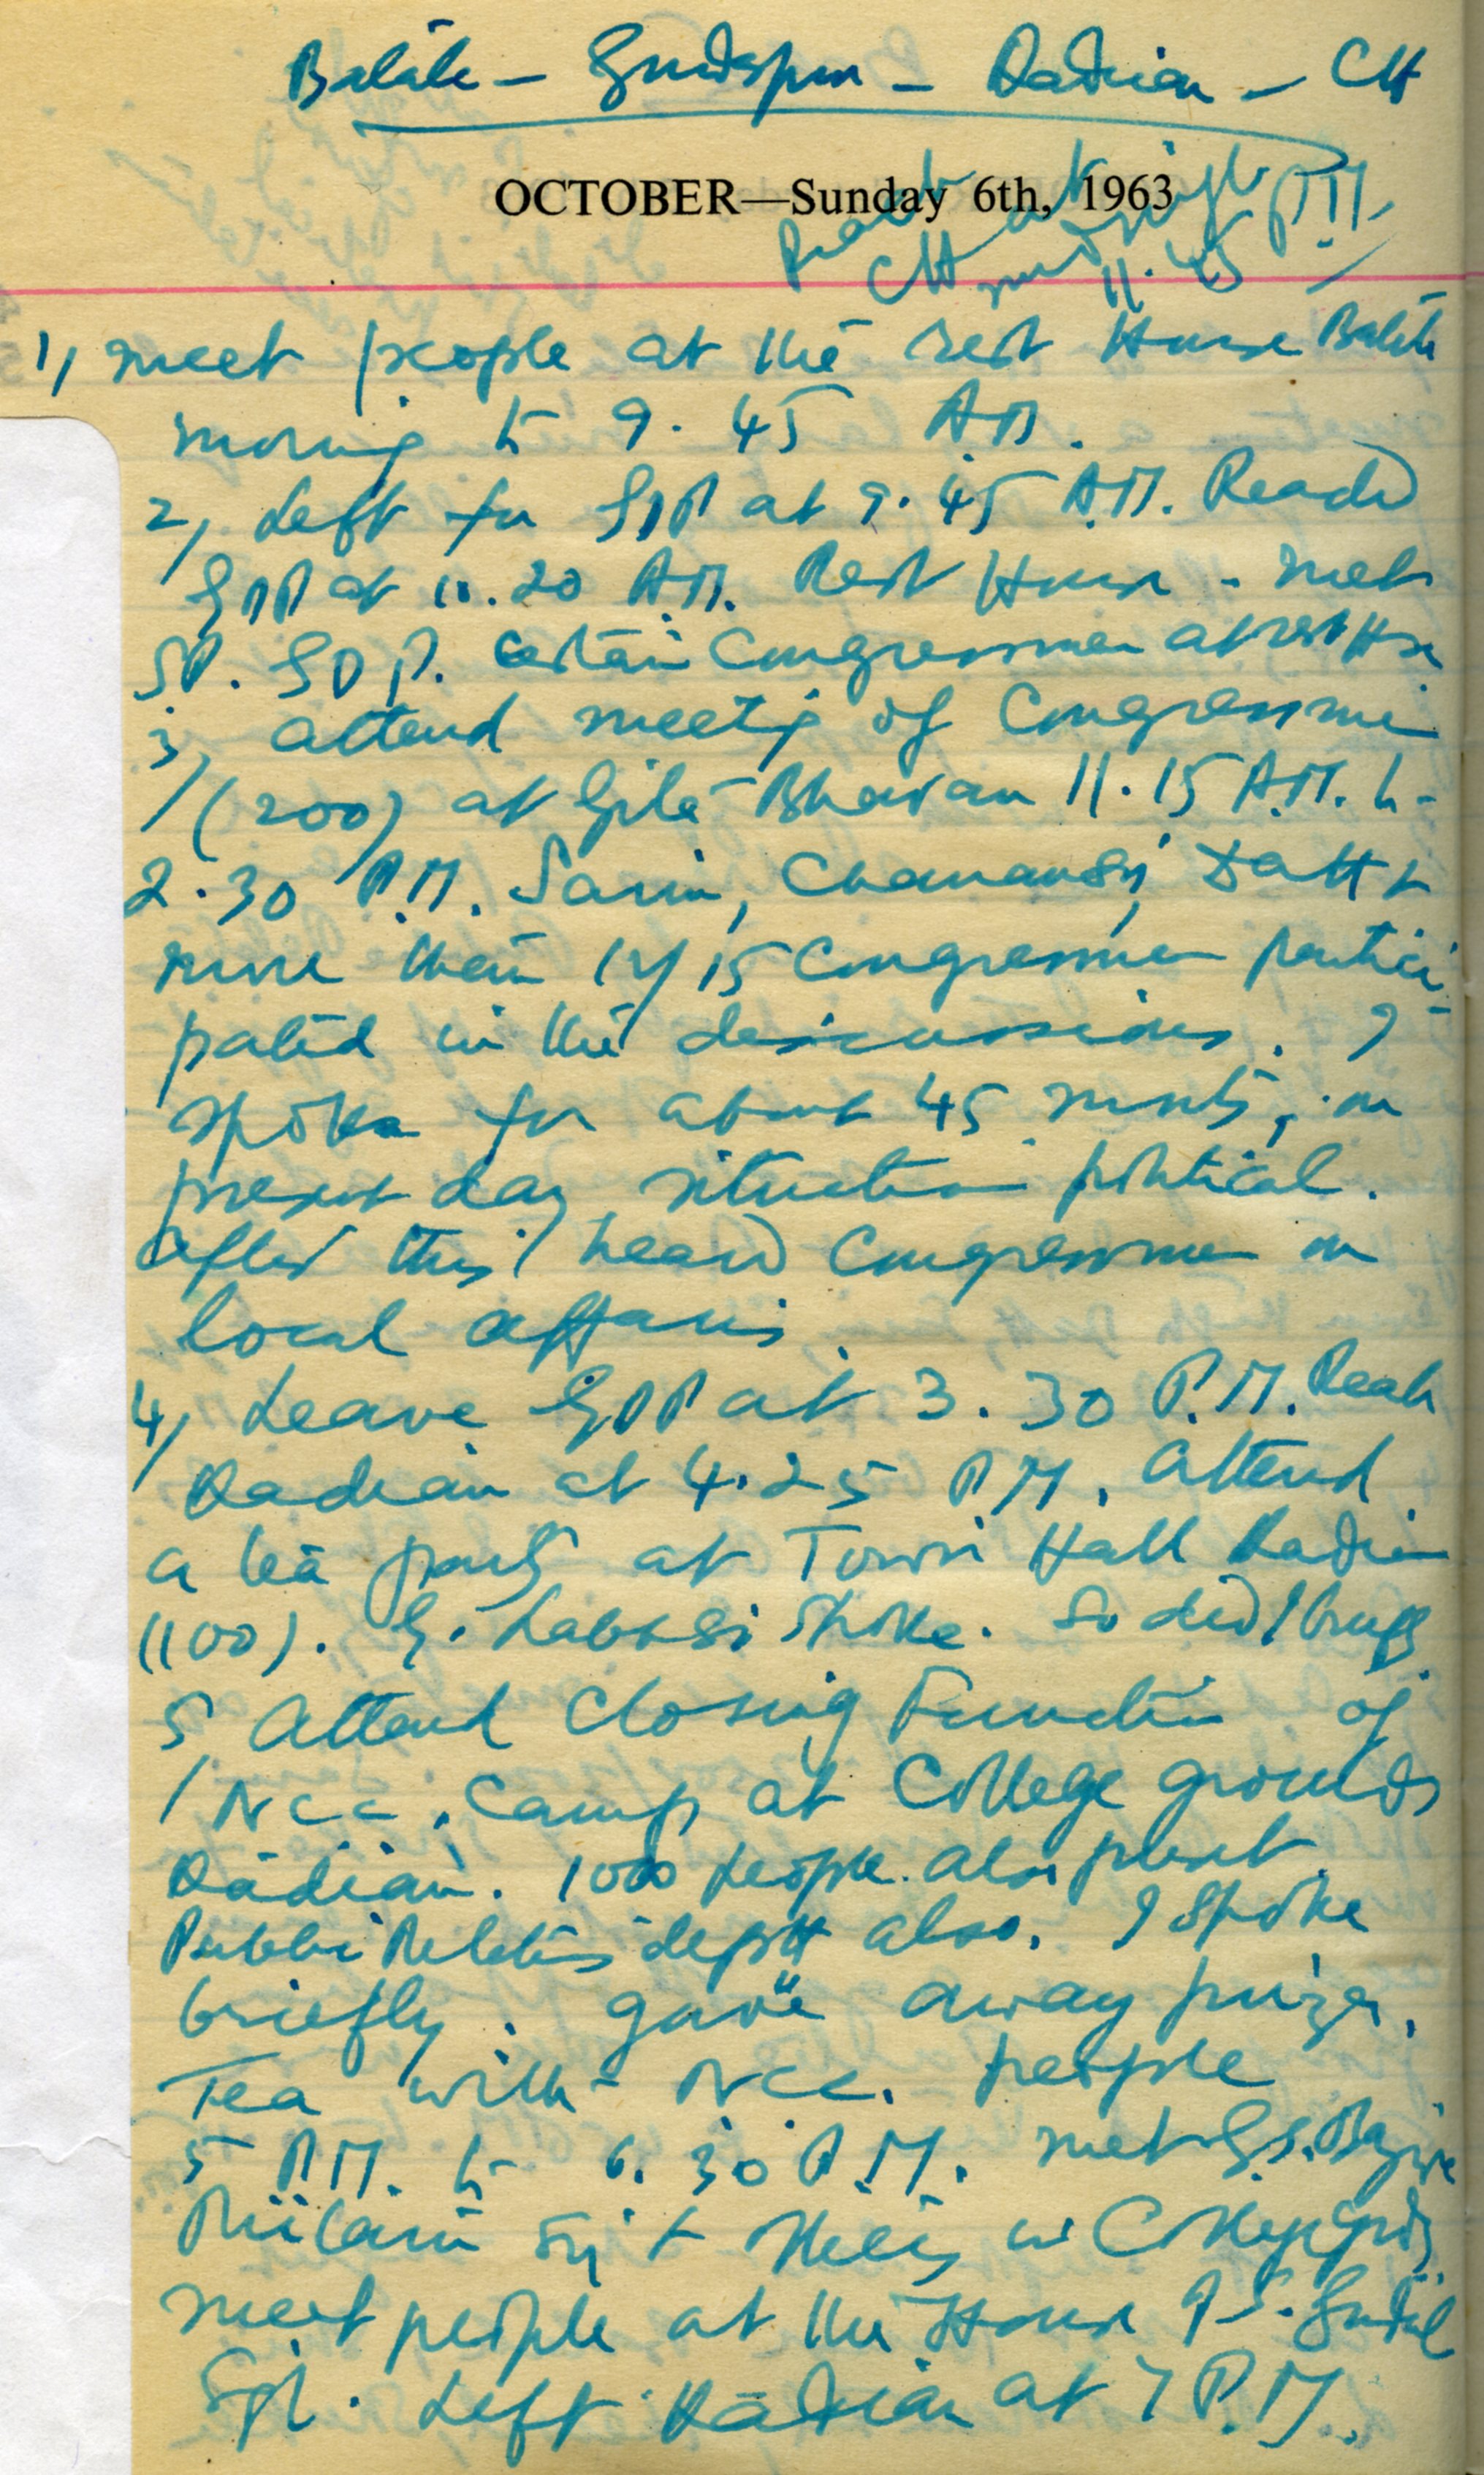 Batala - Gurdaspur - Qadian - CH
OCTOBER—Sunday 6th, 1963
Reach
CH midnight
11.45 P.M.
1, meet people at the rest House Batala
morning to 9.45 A.M.
2, Left for GDP at 9.45 A.M. Reached
GDP at 11.20 A.M. Rest House - met
SP. certain Congressmen at rest Hse
3, attend meetig of Congressmen
(200) at Gita Bhavan 11.15 A.M. to -
2.30 P.M. Sarin, Chamansij, Datt +
more than 14/15 Congressmen partici-
pated in the descussions. I
spoke for about 45 minuts, on
present day situation political.
After this I heard Congressmen on
local affairs.
4, Leave GDP at 3.30 P.M. Reach
Qadian at 4.25 P.M. Attend
a tea party at Town Hall Qadian
(100). spoke. So did I briefly
5 Attend Closing Function of
NCC. Camp at College grounds
Qadian. 1000 people also present.
Public Relations deptt also. I spoke
briefly. gave away prizes.
Tea with - NCC. people
5 P.M. to 6.30 P.M. met S.
in College Grds
meet people at the House of S.
Left Qadian at 7 P.M.